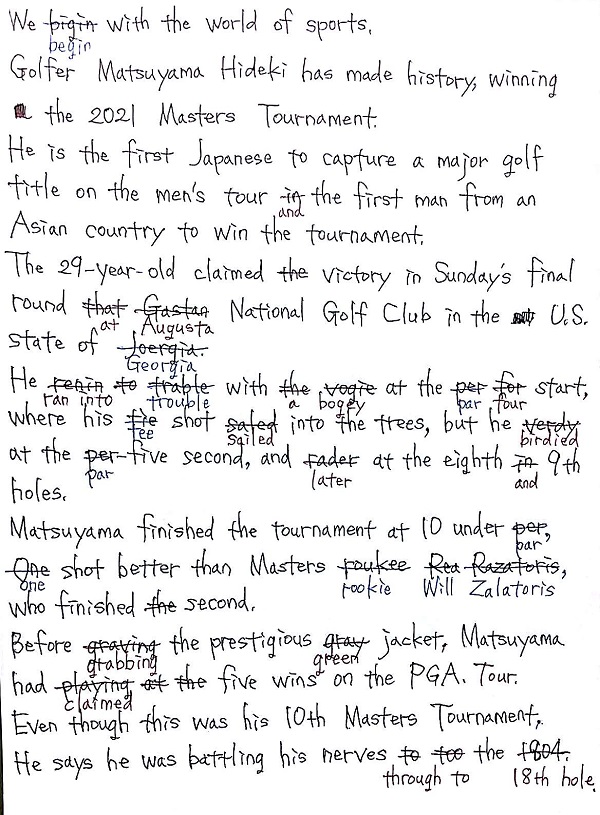 We bigin with the world of sports.
begin
Golfer Matsuyama Hideki has made history, winning
the 2021 Masters Tournament.
He is the first Japanese to capture a major golf
title on the men's tour in the first man from an
and
Asian country to win the tournament.
The 29-year-old claimed the victory in Sunday's final
round that Gastan National Golf Club in the U.S.
at Augusta
state of Joergia.
Georgia
He renin to trable with the vogie at the per for start,
ran into trouble a bogey par four
where his tie shot safed into the trees, but he verdy
tee sailed birdied
at the per-five second, and rader at the eighth in 9th
par later and
holes.
Matsuyama finished the tournament at 10 under per,
par,
One shot better than Masters roukee Rea Razatoris,
one rookie Will Zalatoris
who finished the second.
Before graving the prestigious gray jacket, Matsuyama
grabbing green
had playing at the five wins on the PGA. Tour.
claimed
Even though this was his 10th Masters Tournament,
He says he was battling his nerves to too the 1804.
through to 18th hole.